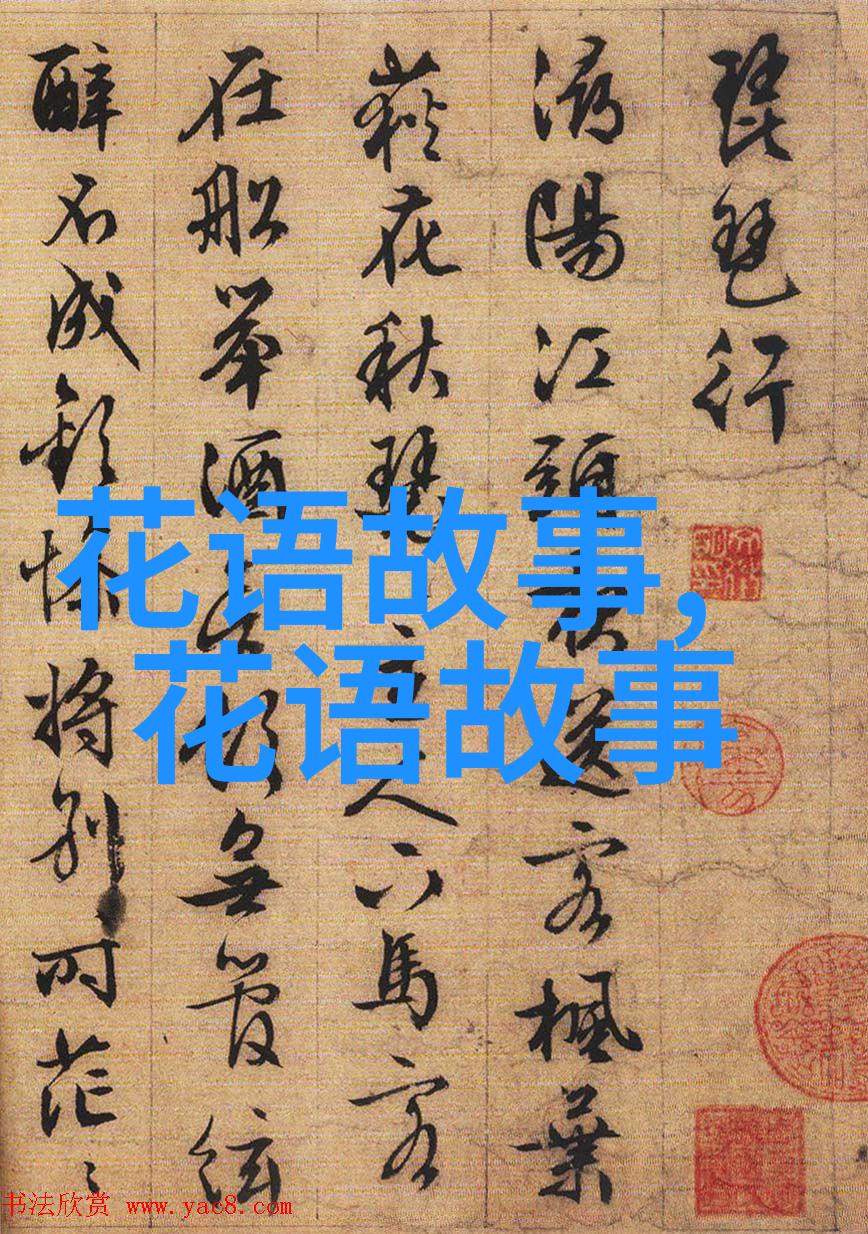 琵琶行
潯陽江頭夜送客楓葉
荻花秋瑟主人下馬客
在船舉酒欲飲無管絃
醉不成歡慘將别時茫〻
花语故事,
花语故事
书法欣赏 www.yac8.com